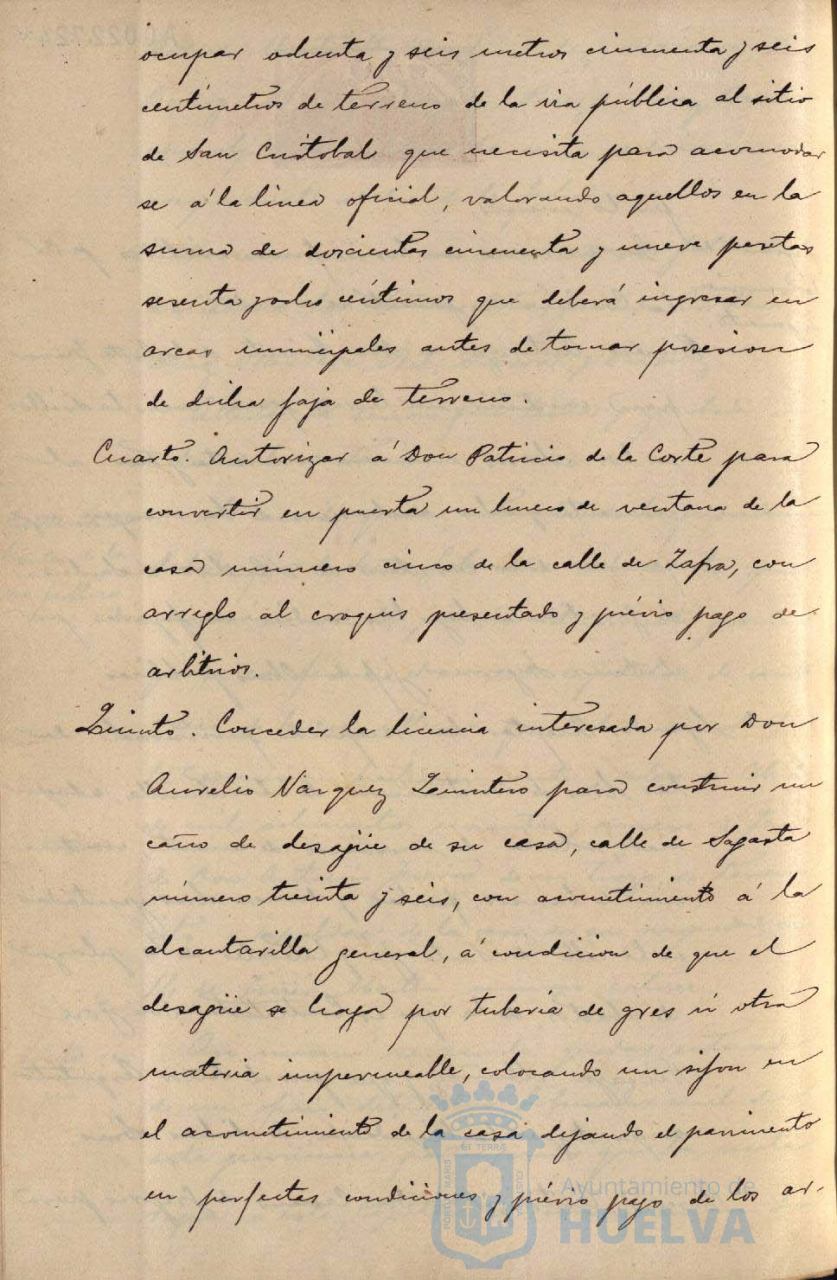 ocupar ochenta y seis metros cincuenta y seis
centímetros de terreno de la via pública al sitio
de San Cristobal que necesita para acomodar
se á la linea oficial, valorando aquellos en la
suma de doscientas cincuenta y nueve pesetas
sesenta y ocho céntimos que deberá ingresar en
arcas municipales antes de tomar posesion
de dicha faja de terreno.
Cuarto. Autorizar á Don Patricio de la Corte para
convertir en puerta un hueco de ventana de la
casa número cinco de la calle de Zafra, con
arreglo al croquis presentado y prévio pago de
arbitrios.
Quinto. Conceder la licencia interesada por Don
Aurelio Vazquez Quintero para construir un
caño de desagüe de su casa, calle de Sagasta
número treinta y seis, con acometimiento á la
alcantarilla general, á condicion de que el
desagüe se haga por tuberia de gres ú otra
materia impermeable, colocando un sifon en
el acometimiento de la casa dejando el pavimento
en perfectas condiciones y prévio pago de los ar-
Ayuntamiento de
HUELVA